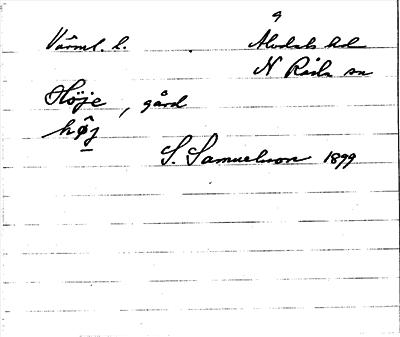 9
Värml. l. Älvdals hd
N Råda sn
Höje, gård
høj
S. Samuelsson 1899